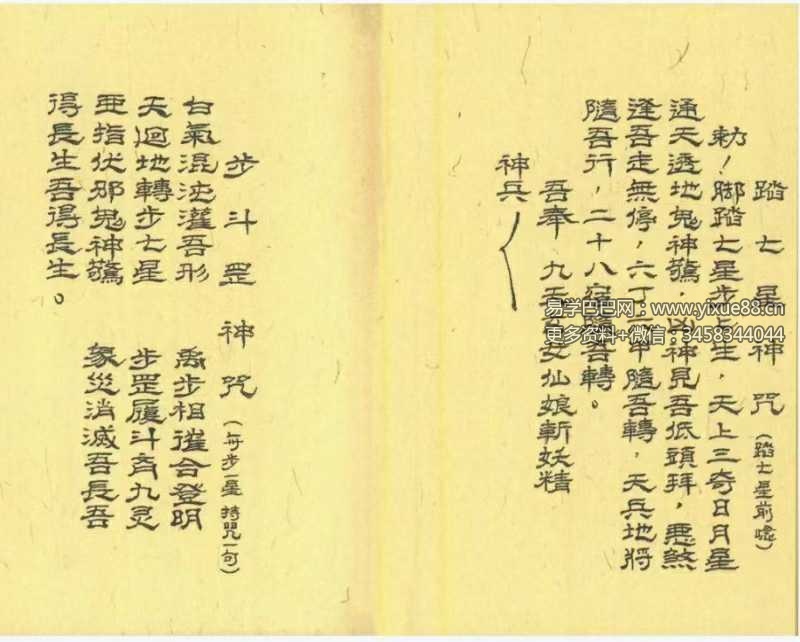 踏七星神咒（踏七星前唸）
勅！脚踏七星步上生，天上三奇日月星
通天透地鬼神驚，凶神見吾低頭拜，惡煞
逢吾走無停，六丁甲隨吾轉，天兵地將
隨吾行，二十八宿隨吾轉。
吾奉 九天女仙娘斬妖精
神兵
步斗罡神咒（每步一星 持咒一句）
白氣混沌灌吾形 禹步相催合登明
天迴地轉步七星 步罡履斗齊九灵
亚指伏邪鬼神驚 象災消滅吾長吾
得長生吾得長生。
易学巴巴网：www.yixue88.cn
更多资料+微信：3458344044